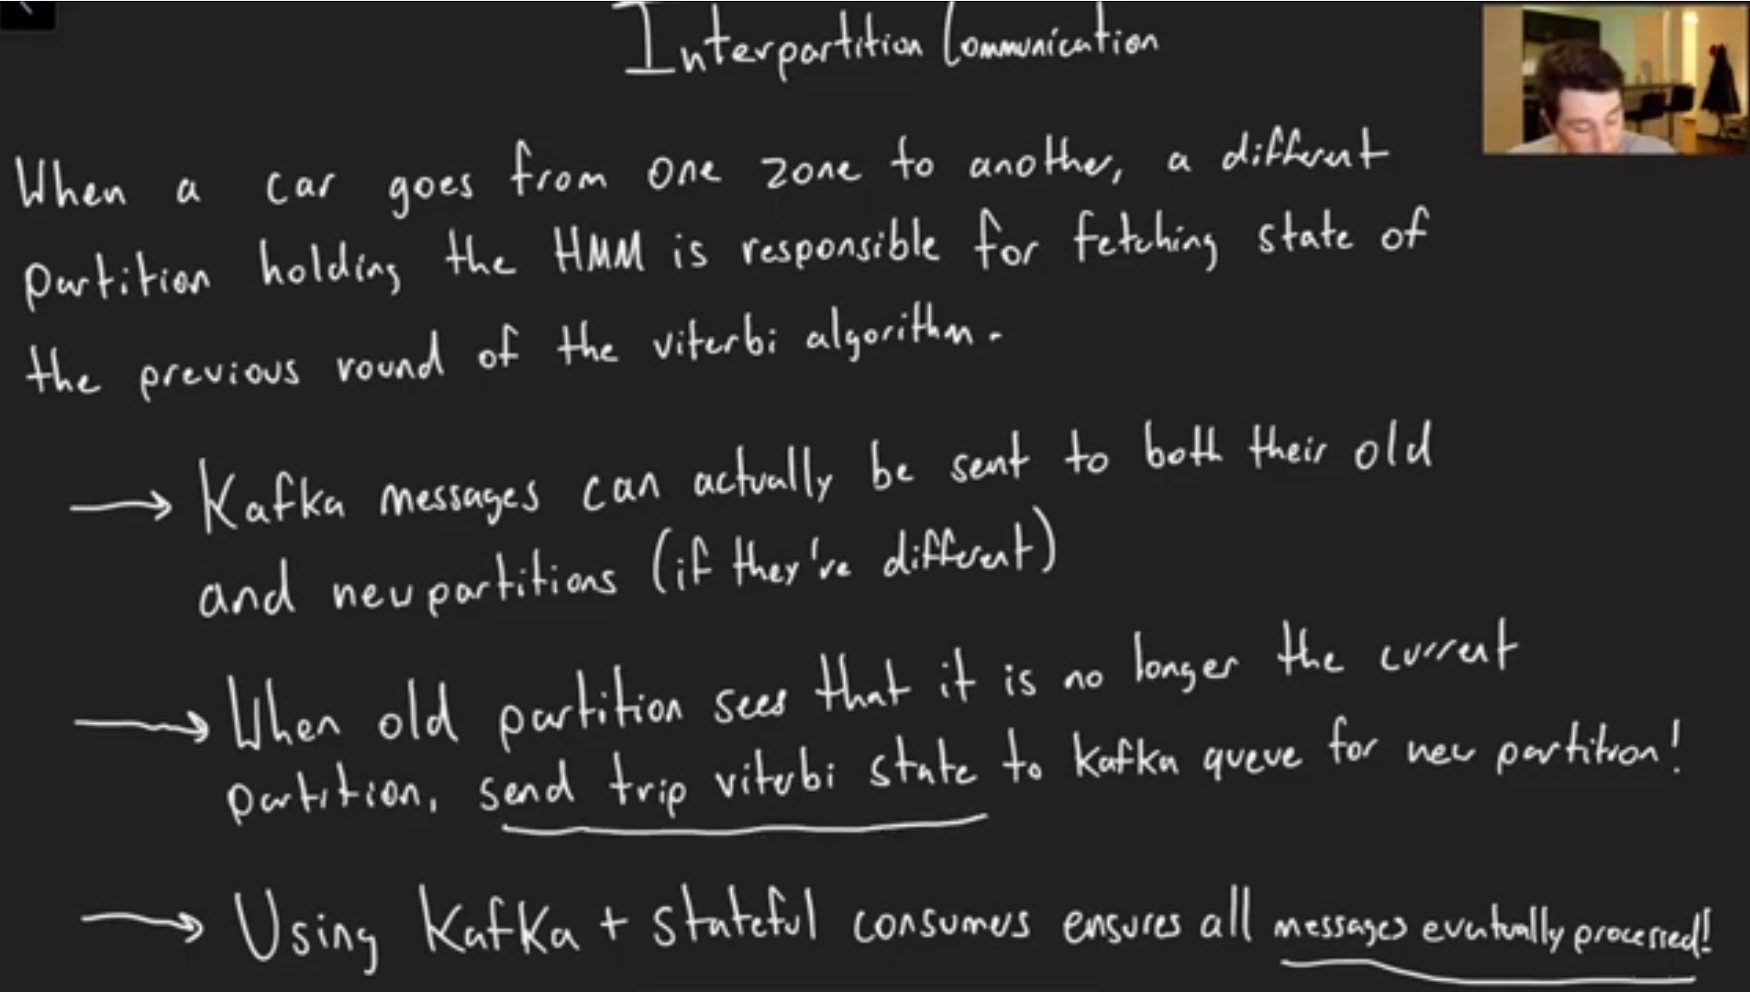 Interpartition Communication
When a car goes from one zone to another, a different
partition holding the HMM is responsible for fetching state of
the previous round of the viterbi algorithm.
→ Kafka messages can actually be sent to both their old
and new partitions (if they're different)
→ When old partition sees that it is no longer the current
partition, send trip viterbi state to kafka queue for new partition!
→ Using Kafka + stateful consumers ensures all messages eventually processed!